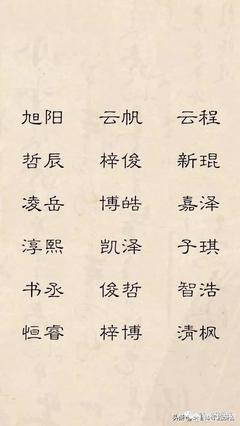 旭阳 云帆 云程
哲辰 梓俊 新琨
凌岳 博皓 嘉泽
淳熙 凯泽 子琪
书丞 俊哲 智浩
恒睿 梓博 清枫